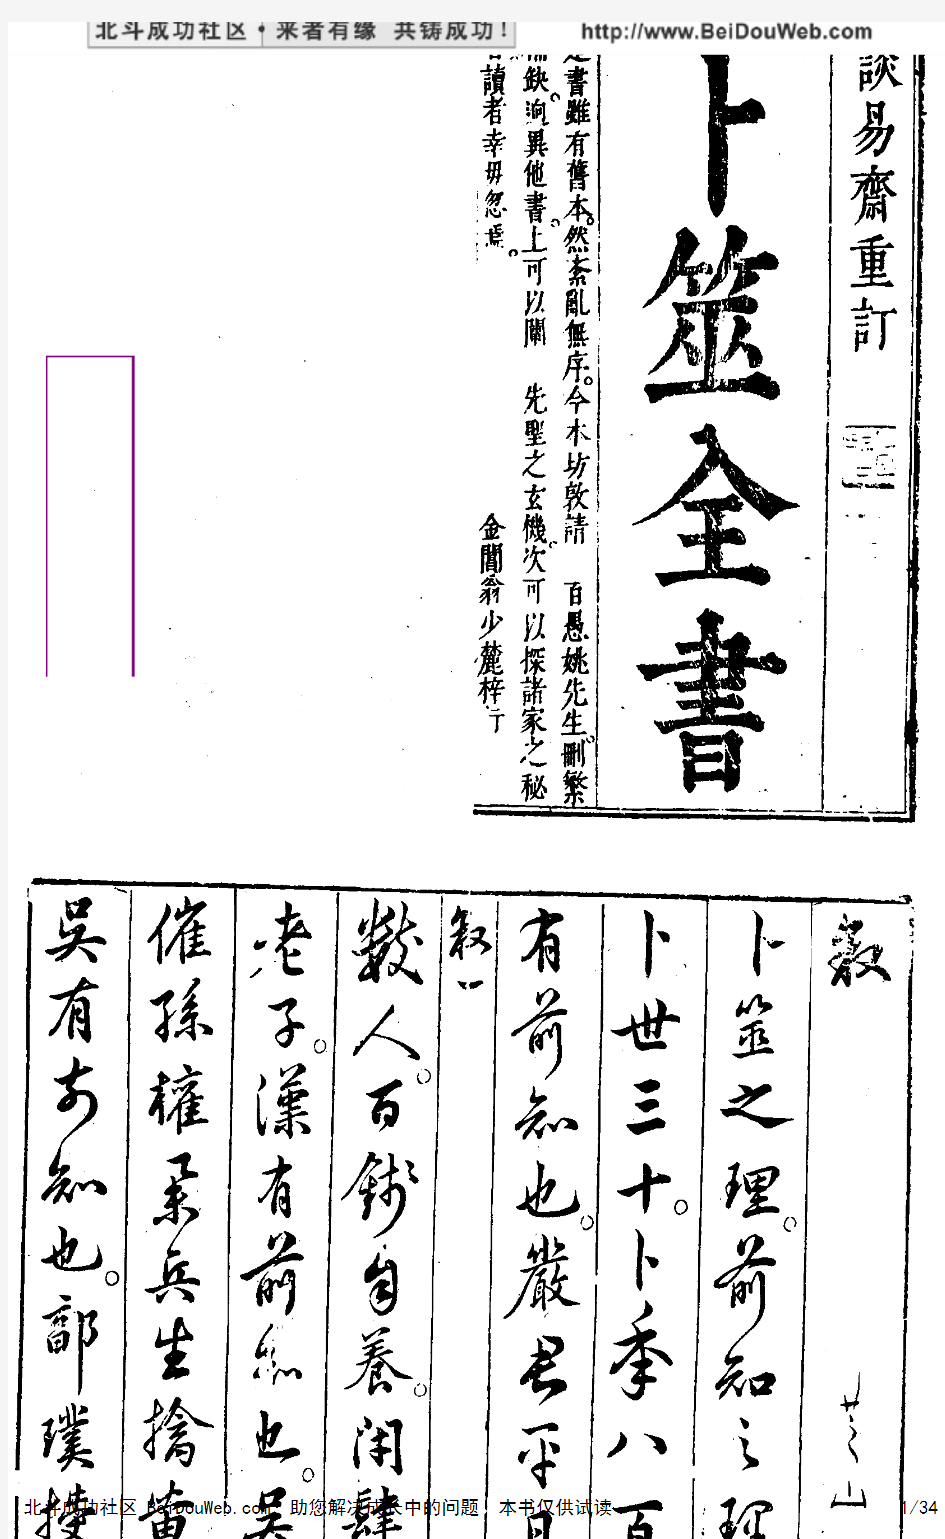 北斗成功社区·来者有缘 共铸成功!
http://www.BeiDouWeb.com
談易齋重訂
卜筮全書
書雖有舊本。然紊亂無序。今本坊敦請 百愚姚先生刪繁
缺逈異他書。上可以闡 先聖之玄機。次可以探諸家之秘
讀者幸毋忽焉。 金閶翁少麓梓行
敘
卜筮之理。前知之理
卜世三十。卜季八百
有前知也。嚴君平日
敘一
數人。百錢自養。閉肆
老子。漢有前知也。吳
催孫權 兵生擒黃
吳有前知也。郭璞
北斗成功社区 BeiDouWeb.com 助您解决成长中的问题，本书仅供试读
1/34